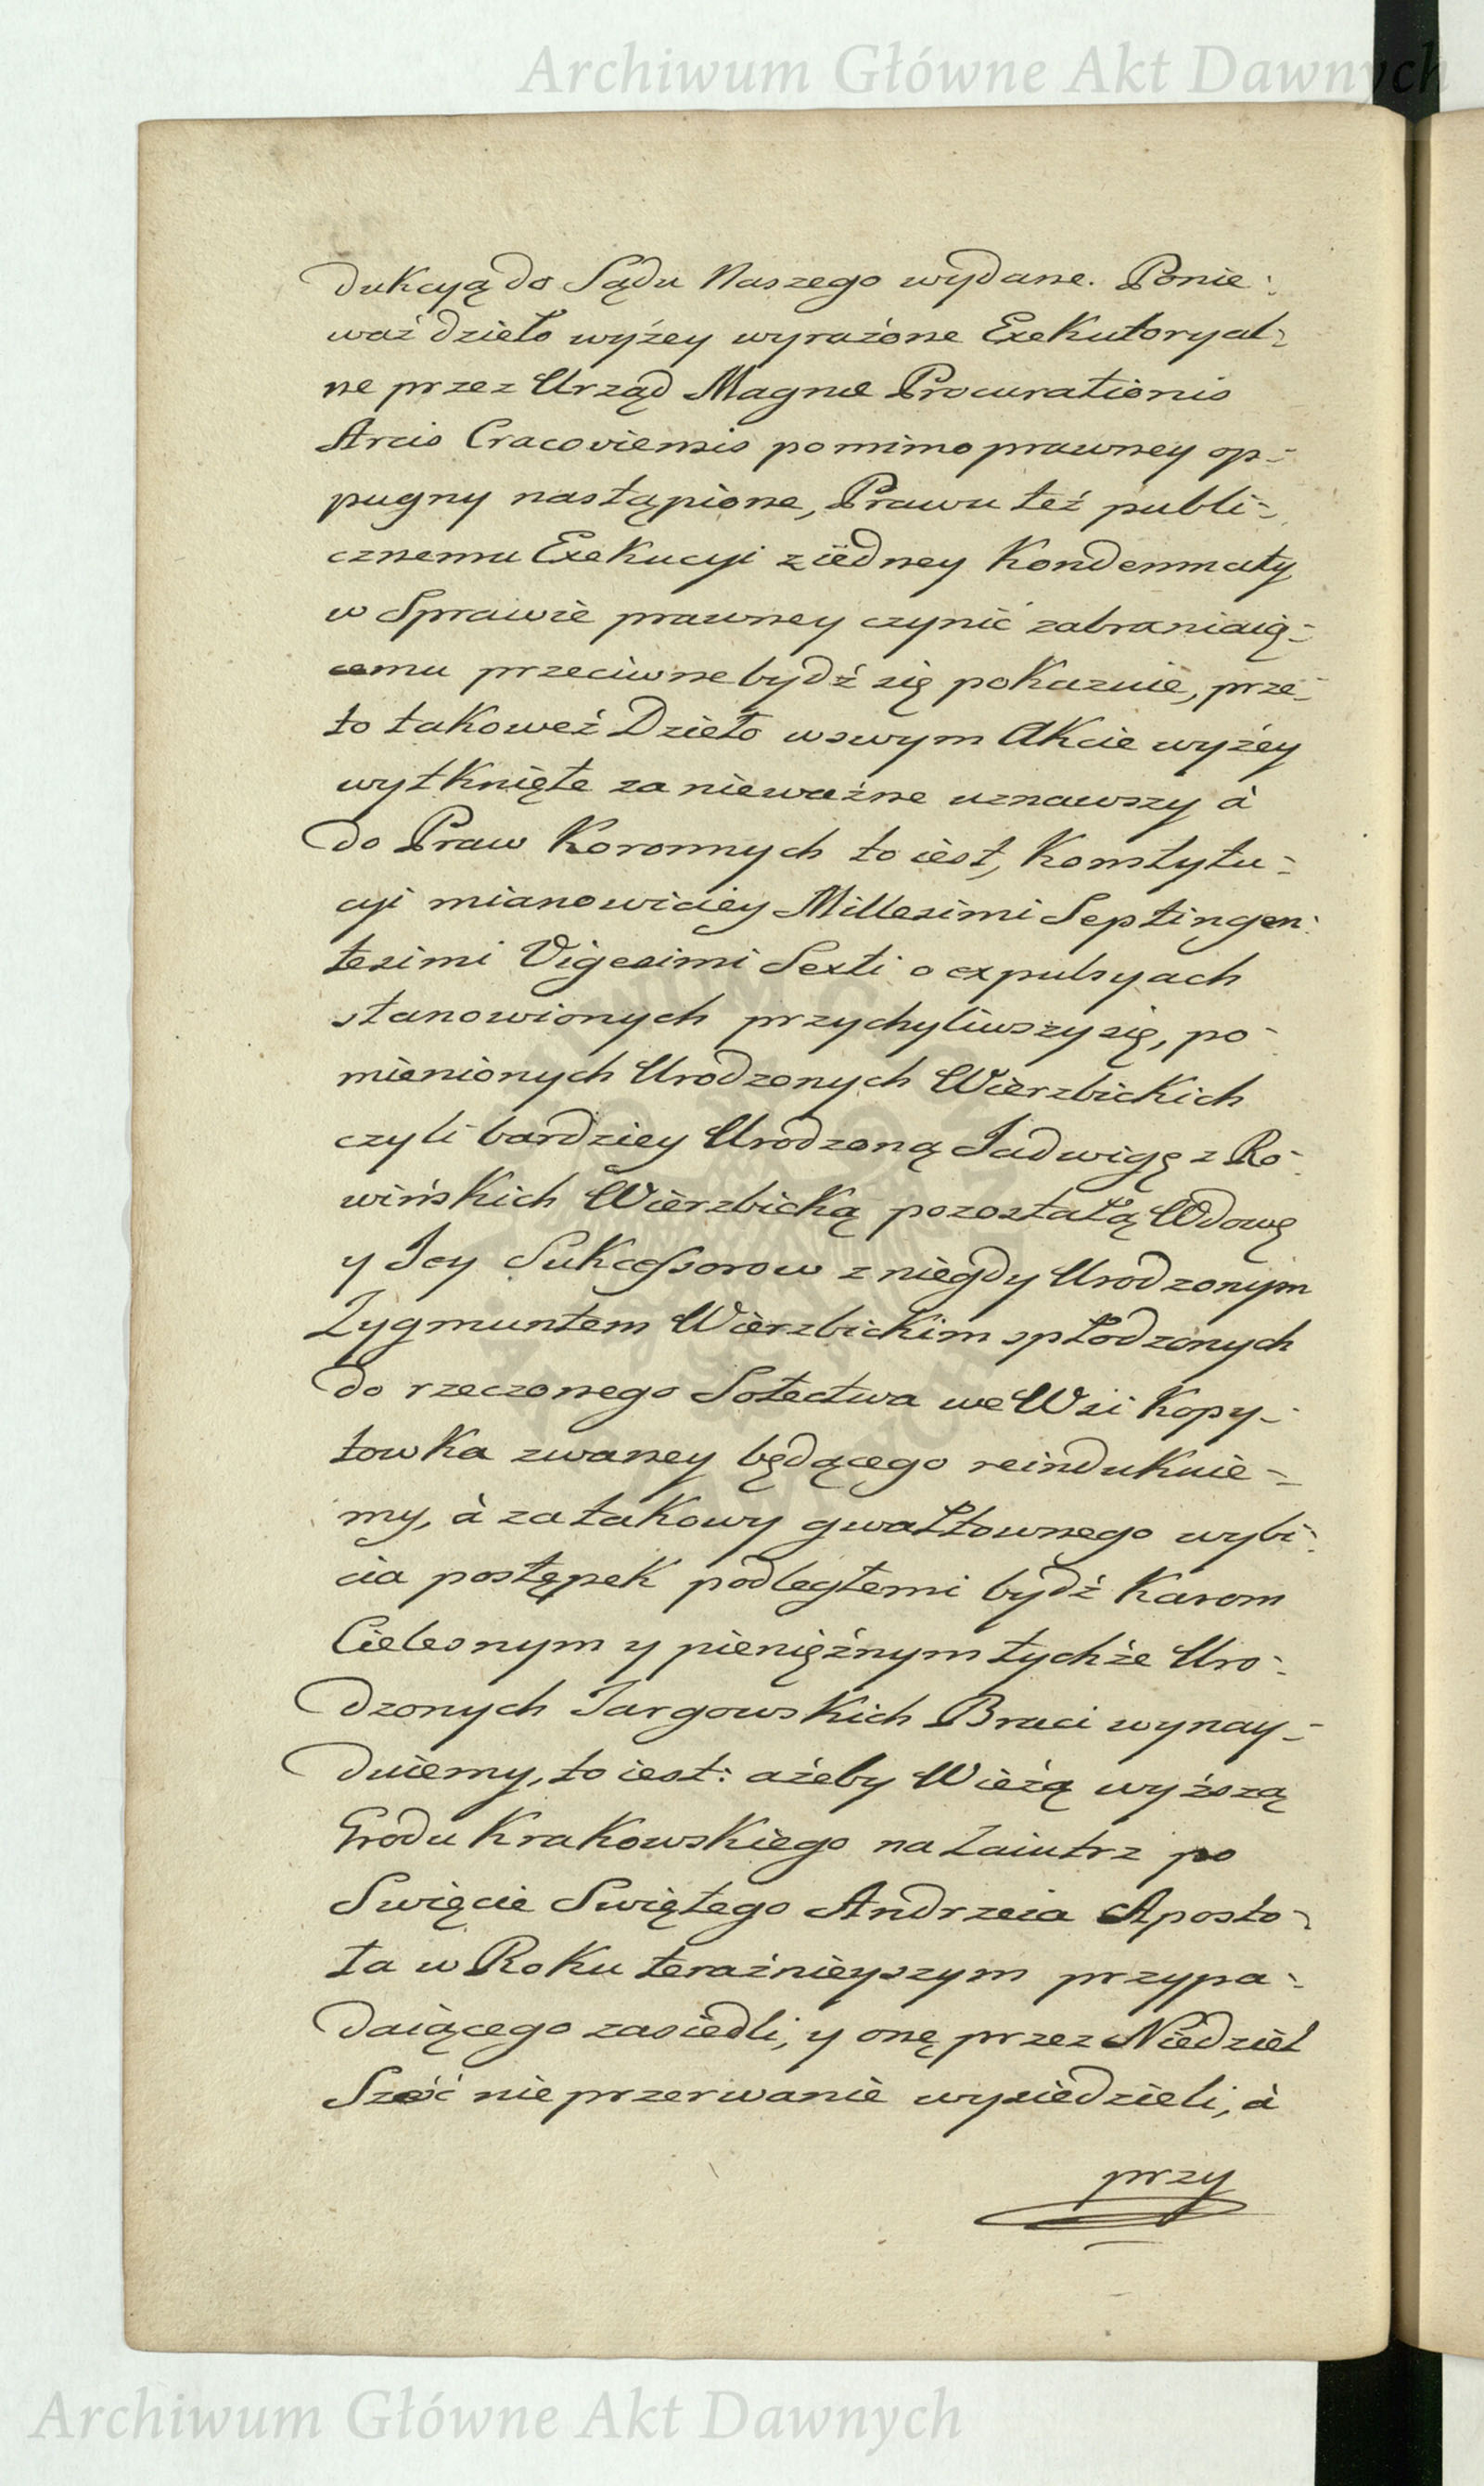 Archiwum Główne Akt Dawnych
dukcyą do Sądu Naszego wydane. Ponie-
waż dzieło wyżey wyrażone Exekutoryal-
ne przez Urząd Magnæ Procurationis
Arcis Cracoviensis pomimo prawney op-
pugny nastąpione, Prawu też publi-
cznemu Exekucyi z iedney Kondemnaty
w Sprawie prawney czynić zabraniaią-
cemu przeciwne bydź się pokazuie, prze-
to takoweż Dzieło w swym Akcie wyżey
wytknięte za nieważne uznawszy à
do Praw Koronnych to iest, Konstytu-
cyi mianowiciey Millesimi Septingen-
tesimi Vigesimi Sexti o expulsyach
stanowionych przychyliwszy się, po-
mienionych Urodzonych Wierzbickich
czyli bardziey Urodzoną Jadwigę z Ro-
wińskich Wierzbicką pozostałą Wdowę
y Jey Sukcessorow z niegdy Urodzonym
Zygmuntem Wierzbickim spłodzonych
do rzeczonego Sołectwa we Wsi Kopy-
towka zwaney będącego reindukuie-
my, à za takowy gwałtownego wybi-
cia postępek podległemi bydź Karom
Cielesnym y pieniężnym tychże Uro-
dzonych Jargowskich Braci wynay-
duiemy, to iest: ażeby Wieżą wyższą
Grodu Krakowskiego na Zaiutrz po
Swięcie Swiętego Andrzeia Aposto-
ła w Roku teraźnieyszym przypa-
daiącego zasiedli, y onę przez Niedziel
Sześć nieprzerwanie wysiedzieli, à
przy
Archiwum Główne Akt Dawnych